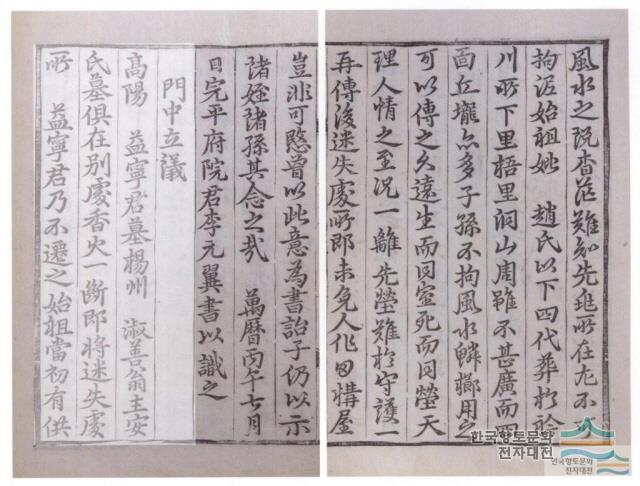 風水之說杳茫難知先兆所在尤不可
拘泥始祖妣 趙氏以下四代葬於衿
川所下里梧里洞山周雖不甚廣而四
面丘壠亦多子孫不拘風水鱗次用之
可以傳之久遠生而同室死而同塋天
理人情之至況一離先塋難於守護一
再傳後迷失處所卽未免人作田構屋
豈非可慜曾以此意為書詒子仍以示
諸姪諸孫其念之哉 萬曆丙午七月
日完平府院君李元翼書以識之
門中立議
高陽 益寧君墓楊州 淑善翁主安
氏墓俱在別處香火一斷卽將迷失處
所 益寧君乃不遷之始祖當初有供
한국향토문화
전자대전
한국향토문화
전자대전